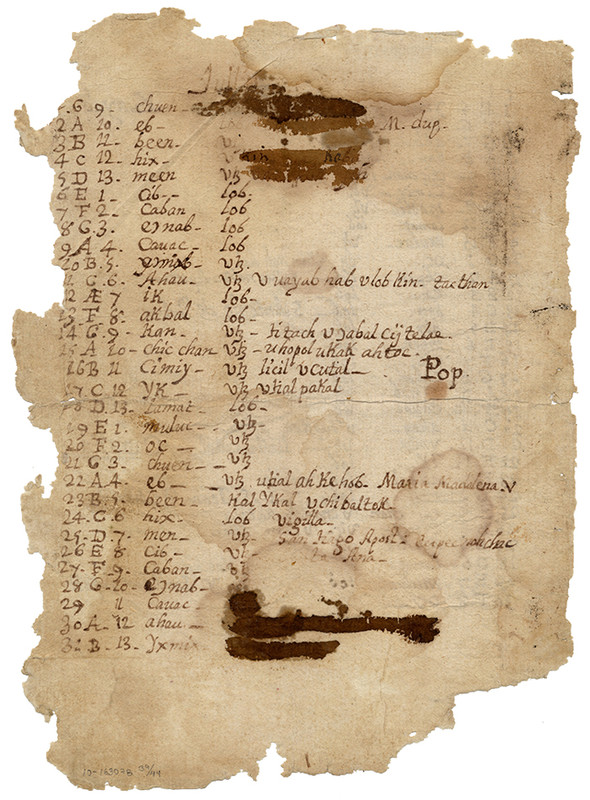 Jul
G 9 chuen
2 A 10. eb M. dup.
3 B 11 been vtz
4 C 12 hix
5 D 13 meen vtz
6 E 1. Cib lob.
7 F 2. Caban lob
8 G. 3. eznab lob
9 A 4. Cauac lob
10 B. 5. ymix vtz.
G. 6. Ahau vtz v uayab hab v lob Kin
12 Æ 7 ik lob
13 F 8. akbal lob.
14 G. 9. Kan vtz ti tach
15 A 10 chic chan vtz u hopol u kak ah toc
16 B 11 Cimiy vtz licil v cutal Pop.
17 C 12 YK vtz v kial pakal
18 D. 13. Lamat lob.
19 E 1. muluc vtz
20 F. 2. oc vtz
21 G 3 chuen vtz
22 A. 4. eb vtz ukial ah Ke hob Maria Madalena. v
23 B. 5. been kal Ykal v chibaltok
24. C. 6 hix lob vigilla
25. D. 7. men vt San tiago Apost
26 E 8 Cib vt Ana
27. F. 9 Caban
28 G. 10. eznab
29 11 Cauac
30 A. 12 ahau
31 B 13. Yxmi
10-163078 39/44